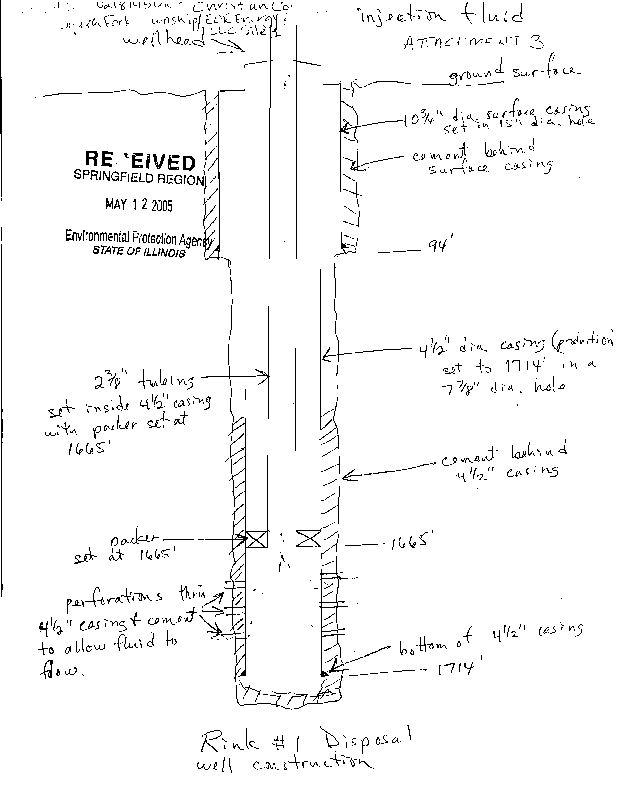 Christian Co
Fork
injection fluid
wellhead
ATTACHMENT 3
ground surface
10 3/4" dia. surface casing
set in 15" dia. hole
cement behind
surface casing
RE EIVED
SPRINGFIELD REGION
MAY 12 2005
Environmental Protection Agency
STATE OF ILLINOIS
94'
4 1/2" dia. casing (production
set to 1714' in a
7 7/8" dia. hole
2 3/8" tubing
set inside 4 1/2" casing
with packer set at
1665'
cement behind
4 1/2" casing
packer
set at 1665'
1665'
perforations thru
4 1/2" casing & cement
to allow fluid to
flow.
bottom of 4 1/2" casing
1714'
Rink #1 Disposal
well construction